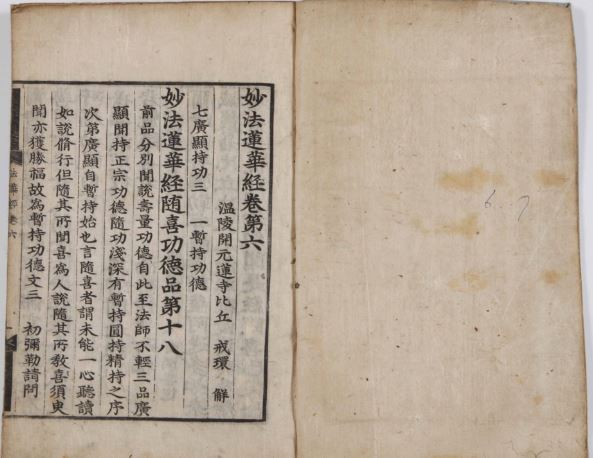 妙法蓮華經卷第六
溫陵開元蓮寺比丘 戒環 解
七廣顯持功三 一暫持功德
妙法蓮華經随喜功德品第十八
前品分别聞說壽量功德自此至法師不輕三品廣
顯聞持正宗功德随功淺深有暫持圓持精持之序
次第廣顯自暫持始也言随喜者謂未能一心聽讀
如說脩行但随其所聞喜爲人說随其所教喜須臾
聞亦獲勝福故爲暫持功德文三 初彌勒請問
法華經卷六
一
6.7